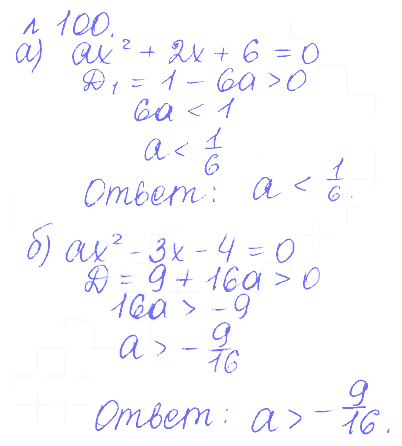 п. 100.
а) ax² + 2x + 6 = 0
Д₁ = 1 - 6a > 0
6a < 1
a < 1/6
Ответ: a < 1/6.
б) ax² - 3x - 4 = 0
Д = 9 + 16a > 0
16a > -9
a > -9/16
Ответ: a > -9/16.